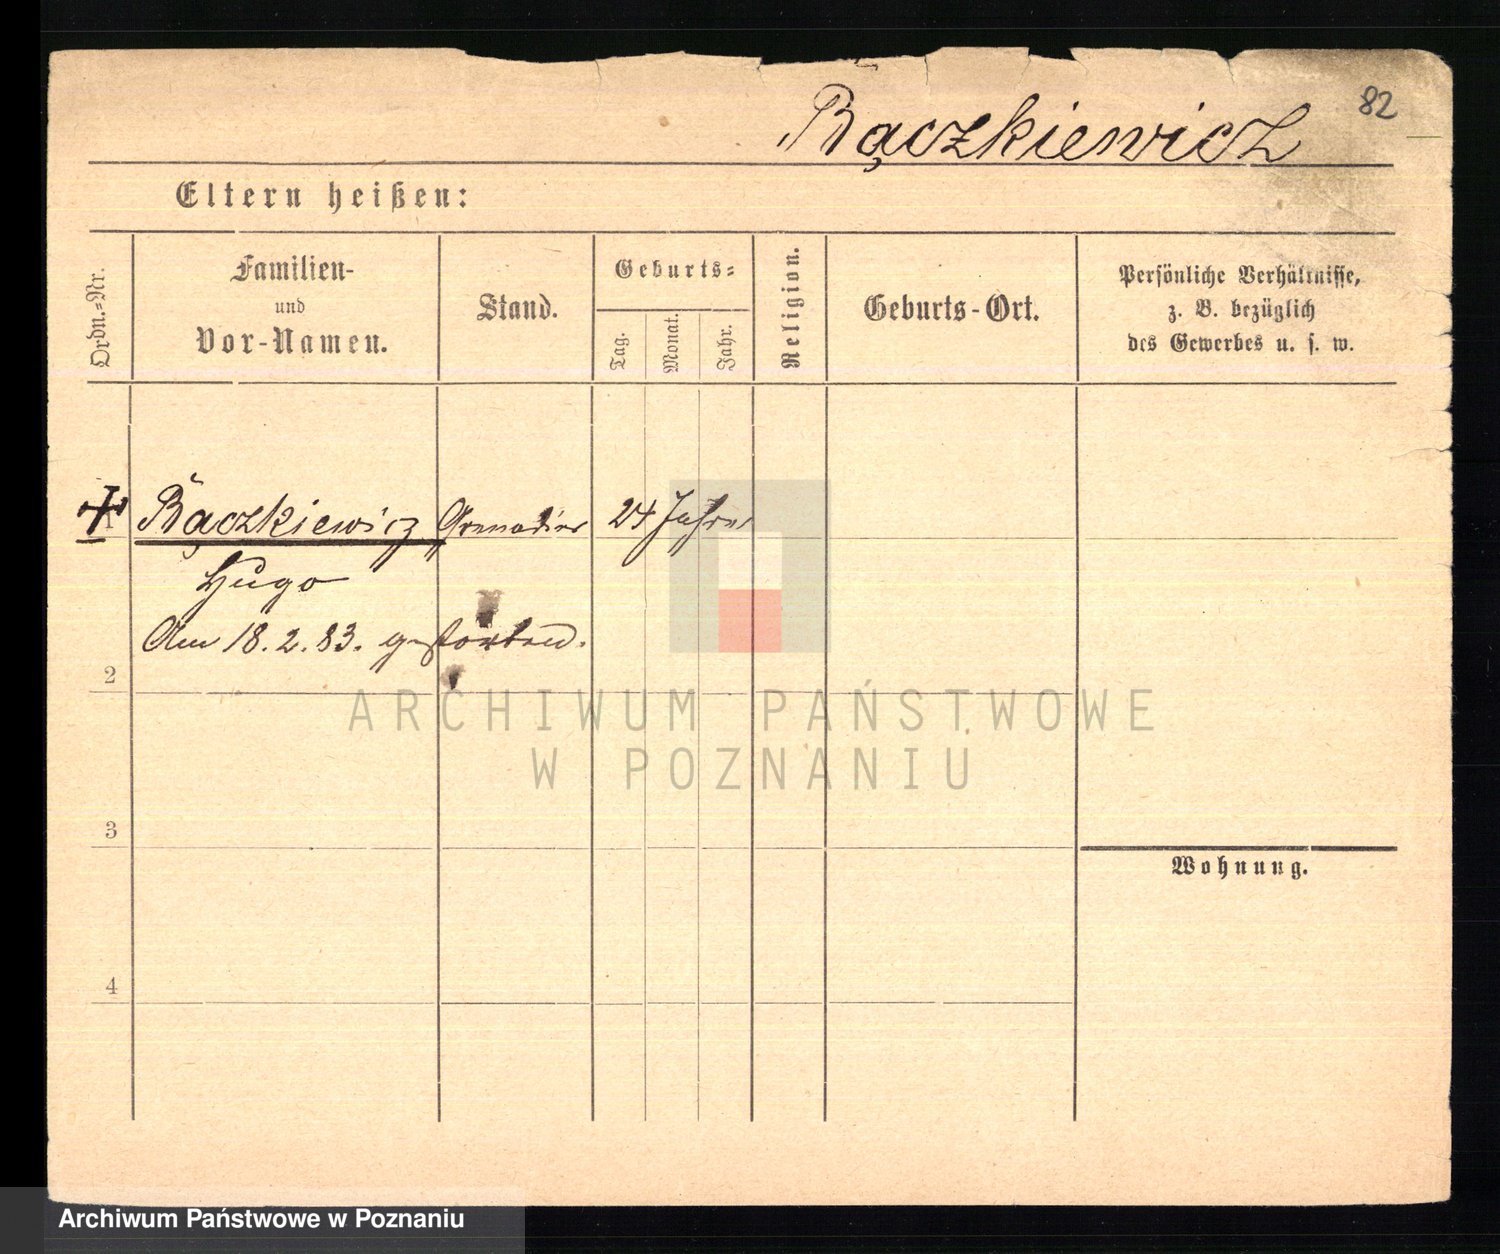 82
Bączkiewicz
Eltern heißen:
Ordn.-Nr.
Familien-
und
Vor-Namen.
Stand.
Geburts-
Tag.
Monat.
Jahr.
Religion.
Geburts-Ort.
Persönliche Verhältnisse,
z. B. bezüglich
des Gewerbes u. s. w.
1 Bączkiewicz Grenadier 24 Jahre
Hugo
Am 18.2.83. gestorben.
2
3
4
Wohnung.
ARCHIWUM PAŃSTWOWE
W POZNANIU
Archiwum Państwowe w Poznaniu